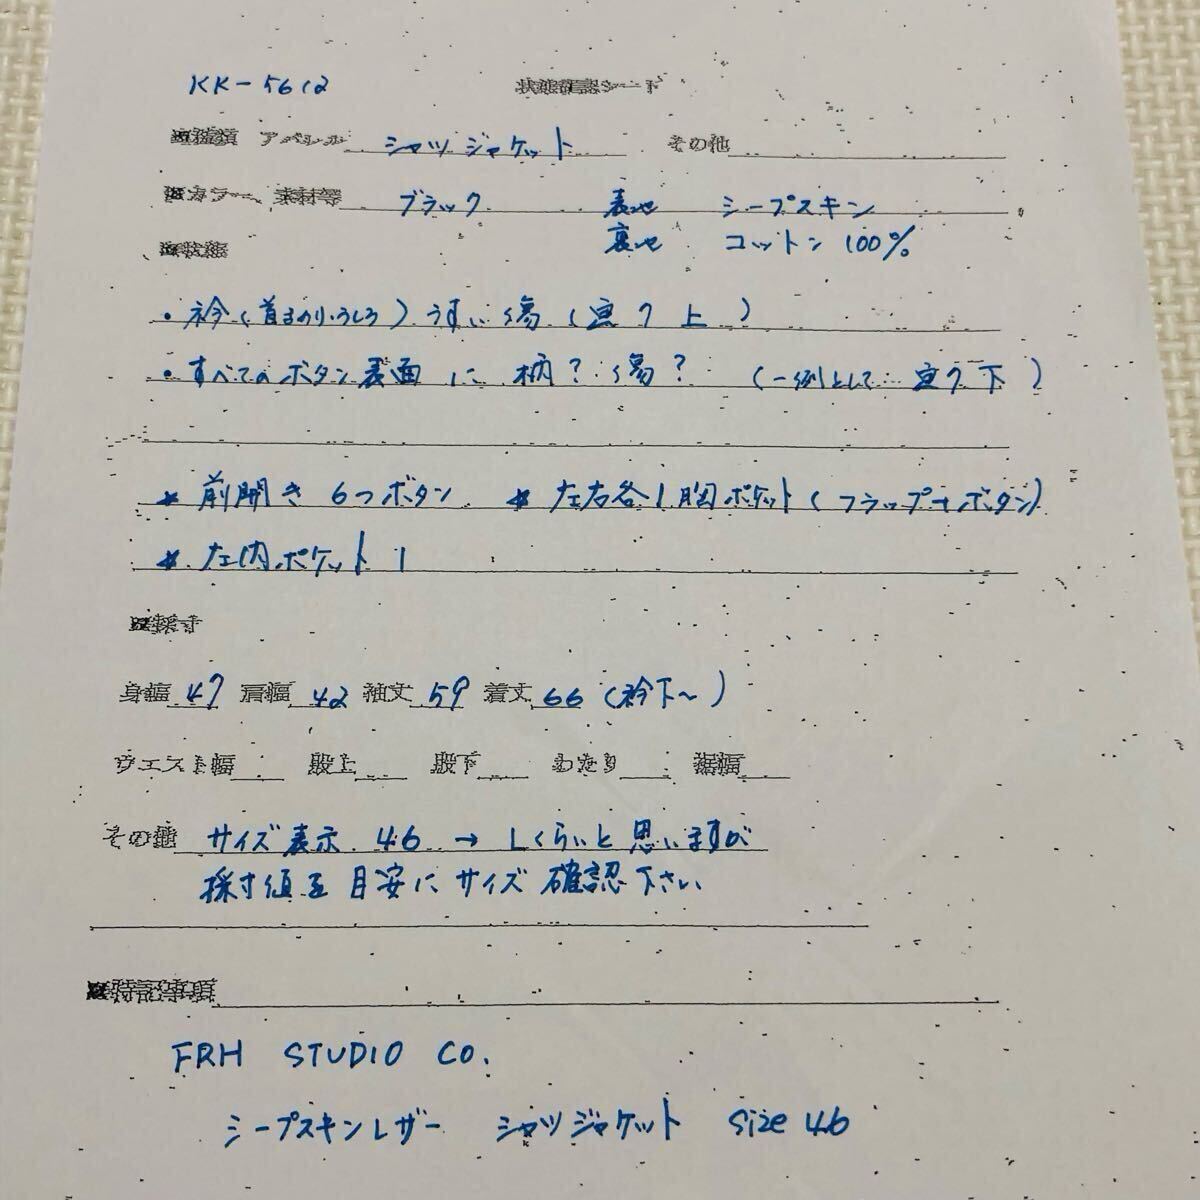 KK-5612 状態確認シート
■種類 アパレル シャツジャケット その他
■カラー、素材等 ブラック 表地 シープスキン
裏地 コットン 100%
■状態
・衿(首まわりうしろ) うすい傷 ( 上 )
・すべてのボタン表面に 柄? 傷? (一例として 下 )
* 前開き 6つボタン * 左右各1胸ポケット(フラップ+ボタン)
* 左内ポケット 1
■採寸
身幅 47 肩幅 42 袖丈 59 着丈 66 (衿下~)
ウエスト幅 股上 股下 わたり 裾幅
その他 サイズ表示 46 → Lくらいと思いますが
採寸値を目安にサイズ確認下さい
■特記事項
FRH STUDIO CO.
シープスキンレザー シャツジャケット size 46